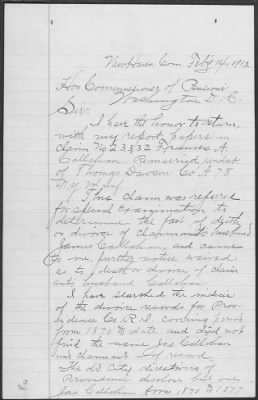 New Haven Conn. Feby 14, 1902
Hon Commissioner of Pensions
Washington D. C.
Sir:
I have the honor to return,
with my report papers in
claim No 23332 Frances A.
Callahan, Remarried widow
of Thomas Dawson Co. A 78
N.Y. Inf.
This claim was referred
for special examination to
determine the fact of death
or divorce of claimant's husband
James Callahan, and came
to me, further notice waived
as to death or divorce of claim
ants husband Callahan.
I have searched the indices
of the divorce records for Prov
idence Co. R.I. covering period
from 1870 to date and did not
find the name Jas Callahan
nor claimant of record.
The old City directories of
Providence disclose but one
Jas Callahan from 1870 to
2